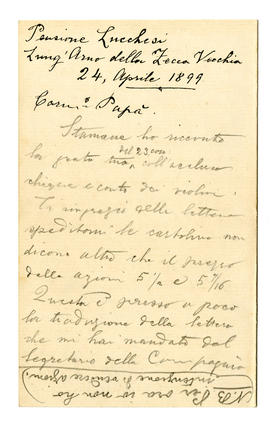 Pensione Lucchesi
Lung'Arno della Zecca Vecchia
24, Aprile 1899
Carmo Papà.
Stamane ho ricevuto
la grata tua del 22 con coll'accluso
cheque e conto dei violini.
Ti ringrazio delle lettere
speditomi le cartoline non
dicono altro che il prezzo
delle azioni 5 1/2 e 5 9/16
Questa è presso a poco
la traduzione della lettera
che mi hai mandato dal
Segretario della Compagnia
N.B. Per ora io non ho
intenzione di